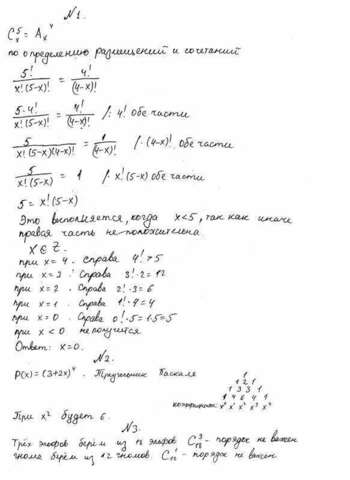 №1.
C⁵ₓ = Aₓ⁴
по определению размещений и сочетаний
5!/(x!(5-x)!) = 4!/(4-x)!
5·4!/(x!(5-x)!) = 4!/(4-x)! /: 4! обе части
5/(x!(5-x)(4-x)!) = 1/(4-x)! /·(4-x)! обе части
5/(x!(5-x)) = 1 /· x!(5-x) обе части
5 = x!(5-x)
Это выполняется, когда x<5, так как иначе
правая часть не положительна.
X ∈ Z.
при x = 4. справа 4! ≠ 5
при x = 3. Справа 3!·2 = 12
при x = 2. Справа 2!·3 = 6
при x = 1. Справа 1!·4 = 4
при x = 0. Справа 0!·5 = 1·5 = 5
при x < 0 не получится
Ответ: x = 0.
№2.
P(x) = (3+2x)⁴. Треугольник Паскаля
1
1 2 1
1 3 3 1
1 4 6 4 1
коэффициенты x⁰ x¹ x² x³ x⁴
При x² будет 6.
№3.
Трёх эльфов берём из эльфов - порядок не важен
гнома берём из 12 гномов. C¹₁₂ - порядок не важен